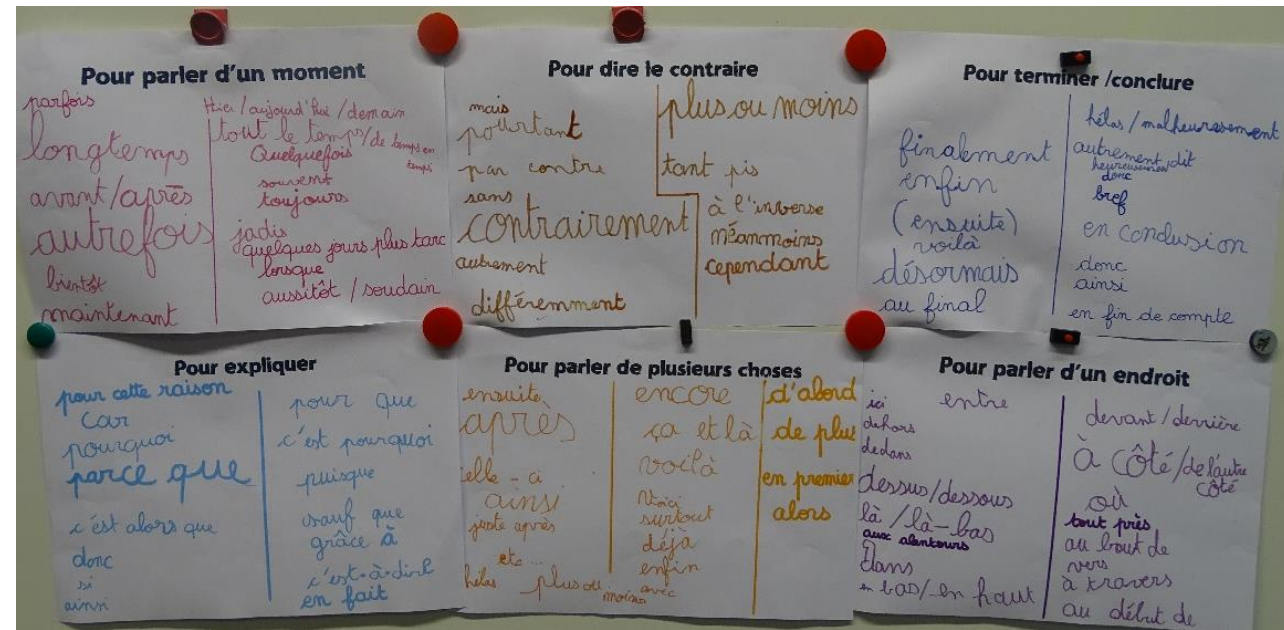 Pour parler d'un moment
parfois
longtemps
avant/après
autrefois
bientôt
maintenant
Hier/aujourd'hui/demain
tout le temps/de temps en
temps
Quelquefois
souvent
toujours
jadis
quelques jours plus tard
lorsque
aussitôt / soudain
Pour dire le contraire
mais
pourtant
par contre
sans
contrairement
autrement
différemment
plus ou moins
tant pis
à l'inverse
néanmoins
cependant
Pour terminer /conclure
finalement
enfin
(ensuite)
voilà
désormais
au final
hélas / malheureusement
autrement dit
heureusement
donc
bref
en conclusion
donc
ainsi
en fin de compte
Pour expliquer
pour cette raison
car
pourquoi
parce que
c'est alors que
donc
si
ainsi
pour que
c'est pourquoi
puisque
sauf que
grâce à
c'est-à-dire
en fait
Pour parler de plusieurs choses
ensuite
après
ainsi
juste après
etc...
hélas plus ou moins
encore
ça et là
voilà
Voici
surtout
déjà
enfin
avec
d'abord
de plus
en premier
alors
Pour parler d'un endroit
ici
dehors
dedans
entre
dessus/dessous
là /là-bas
aux alentours
Dans
en bas/en haut
devant/derrière
à côté/de l'autre
côté
où
tout près
au bout de
vers
à travers
au début de